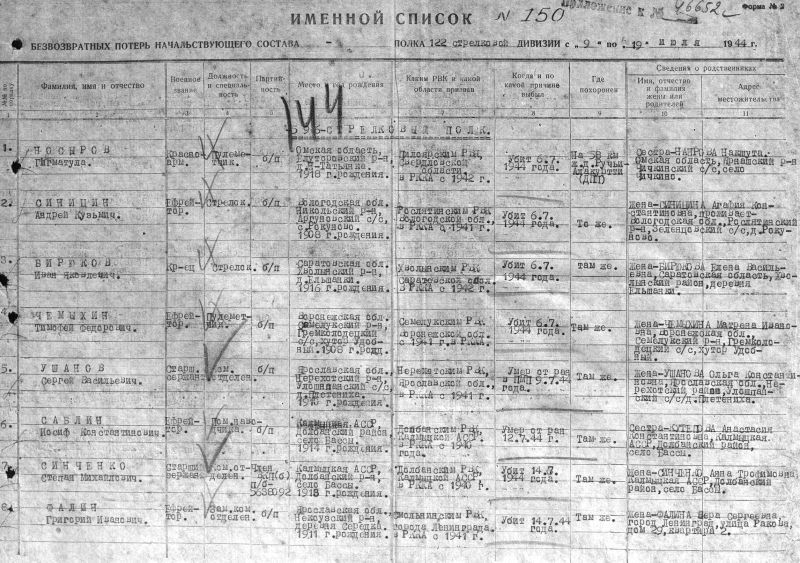 Приложение к № 46652с
Форма № 2
ИМЕННОЙ СПИСОК № 150
БЕЗВОЗВРАТНЫХ ПОТЕРЬ НАЧАЛЬСТВУЮЩЕГО СОСТАВА - ПОЛКА 122 стрелковой ДИВИЗИИ с „9" по 19 июля 1944 г.
Фамилия, имя и отчество
Военное звание
Должность и специальность
Партийность
Место рождения
Каким РВК и какой области призван
Когда и по какой причине выбыл
Где похоронен
Сведения о родственниках
Имя, отчество и фамилия жены или родителей
Адрес местожительства
144
596-СТРЕЛКОВЫЙ ПОЛК.
1. НОСЫРОВ
Красноарм.
Пулеметчик.
б/п
Омская область,
1918 г.рождения.
Свердловской области
в РККА с 1942 г.
Убит 6.7.
1944 года.
На 58 км
ж.д.Ручьи-
2. СИНИЦИН
Андрей Кузьмич.
Ефрейтор.
Стрелок.
б/п
Вологодская обл.,
Никольский р-н,
с.Рокуново.
1908 г.рождения.
Рослятинским РВК,
Вологодской обл.,
в РККА с 1941 г.
Убит 6.7.
1944 года.
То же.
Жена-СИНИЦИНА Агафия Константиновна, проживает-
Вологодская обл., Рослятинский
р-н, Зеленцовский с/с, д.Рокуново.
3. БИРЮКОВ
Иван Яковлевич.
Кр-ец
Стрелок.
б/п
Саратовская обл.
д.Ельшанки.
1916 г.рождения.
Саратовской обл.
в РККА с 1942 г.
Убит 6.7.
1944 года.
там же.
Жена-БИРЮКОВА Елена Васильевна, Саратовская область,
район, деревня
Ельшанки.
4. ЧЕМЫХИН
Тимофей Федорович.
Ефрейтор.
Пулеметчик.
б/п
Воронежская обл.
Семелукский р-н,
с/с, хутор Удобный. 1908 г.рожд.
Семелукским РВК,
Воронежской обл.
с 1941 г.в РККА.
Убит 6.7.
1944 года.
Там же.
Жена-ЧЕМЫХИНА Матрена Ивановна, Воронежская обл.
Семелукский р-н,
с/с, хутор Удобный.
5. УШАНОВ
Сергей Васильевич.
Старш.
сержант
Ком.
отделен.
б/п
Ярославская обл.,
Нерехотский р-н,
г.рождения.
Нерехтским РВК,
Ярославской обл.,
в РККА с 1941 г.
Умер от ран
в ПМП 9.7.44
года.
Там же.
Жена-УШАНОВА Ольга Константиновна, Ярославская обл., Нерехотский район,
6. САБЛИН
Иосиф Константинович.
Ефрейтор.
б/п
Калмыцкая АССР,
Долбанский район,
село Бассы.
1914 г.рождения.
Долбанским РВК,
Калмыцкой АССР,
в РККА с 1940
года.
Умер от ран
12.7.44 г.
Там же.
Сестра-КУТЕПОВА Анастасия
Константиновна, Калмыцкая
АССР, Долбанский район,
село Бассы.
7. СИНЧЕНКО
Степан Михайлович.
Старший
сержант.
Ком.отделен.
Член
ВКП(б)
п/б-
5638092
Калмыцкая АССР,
Долбанский р-н,
село Бассы.
1918 г.рождения.
Долбанским РВК,
Калмыцкой АССР,
в РККА с 1940 г.
Убит 14.7.
1944 года.
Там же.
Жена-СИНЧЕНКО Анна Трофимовна,
Калмыцкая АССР, Долбанский
район, село Бассы.
8. ФАЛИН
Григорий Иванович.
Ефрейтор.
Зам.ком.
отделен.
б/п
Ярославская обл.,
Некоузский р-н,
деревня Середка.
1911 г.рождения.
Смольнинским РВК,
города Ленинграда.
в РККА с 1941 г.
Убит 14.7.44
года.
Там же.
Жена-ФАЛИНА Вера Сергеевна,
город Ленинград, улица Ракова,
дом 29, квартира 2.